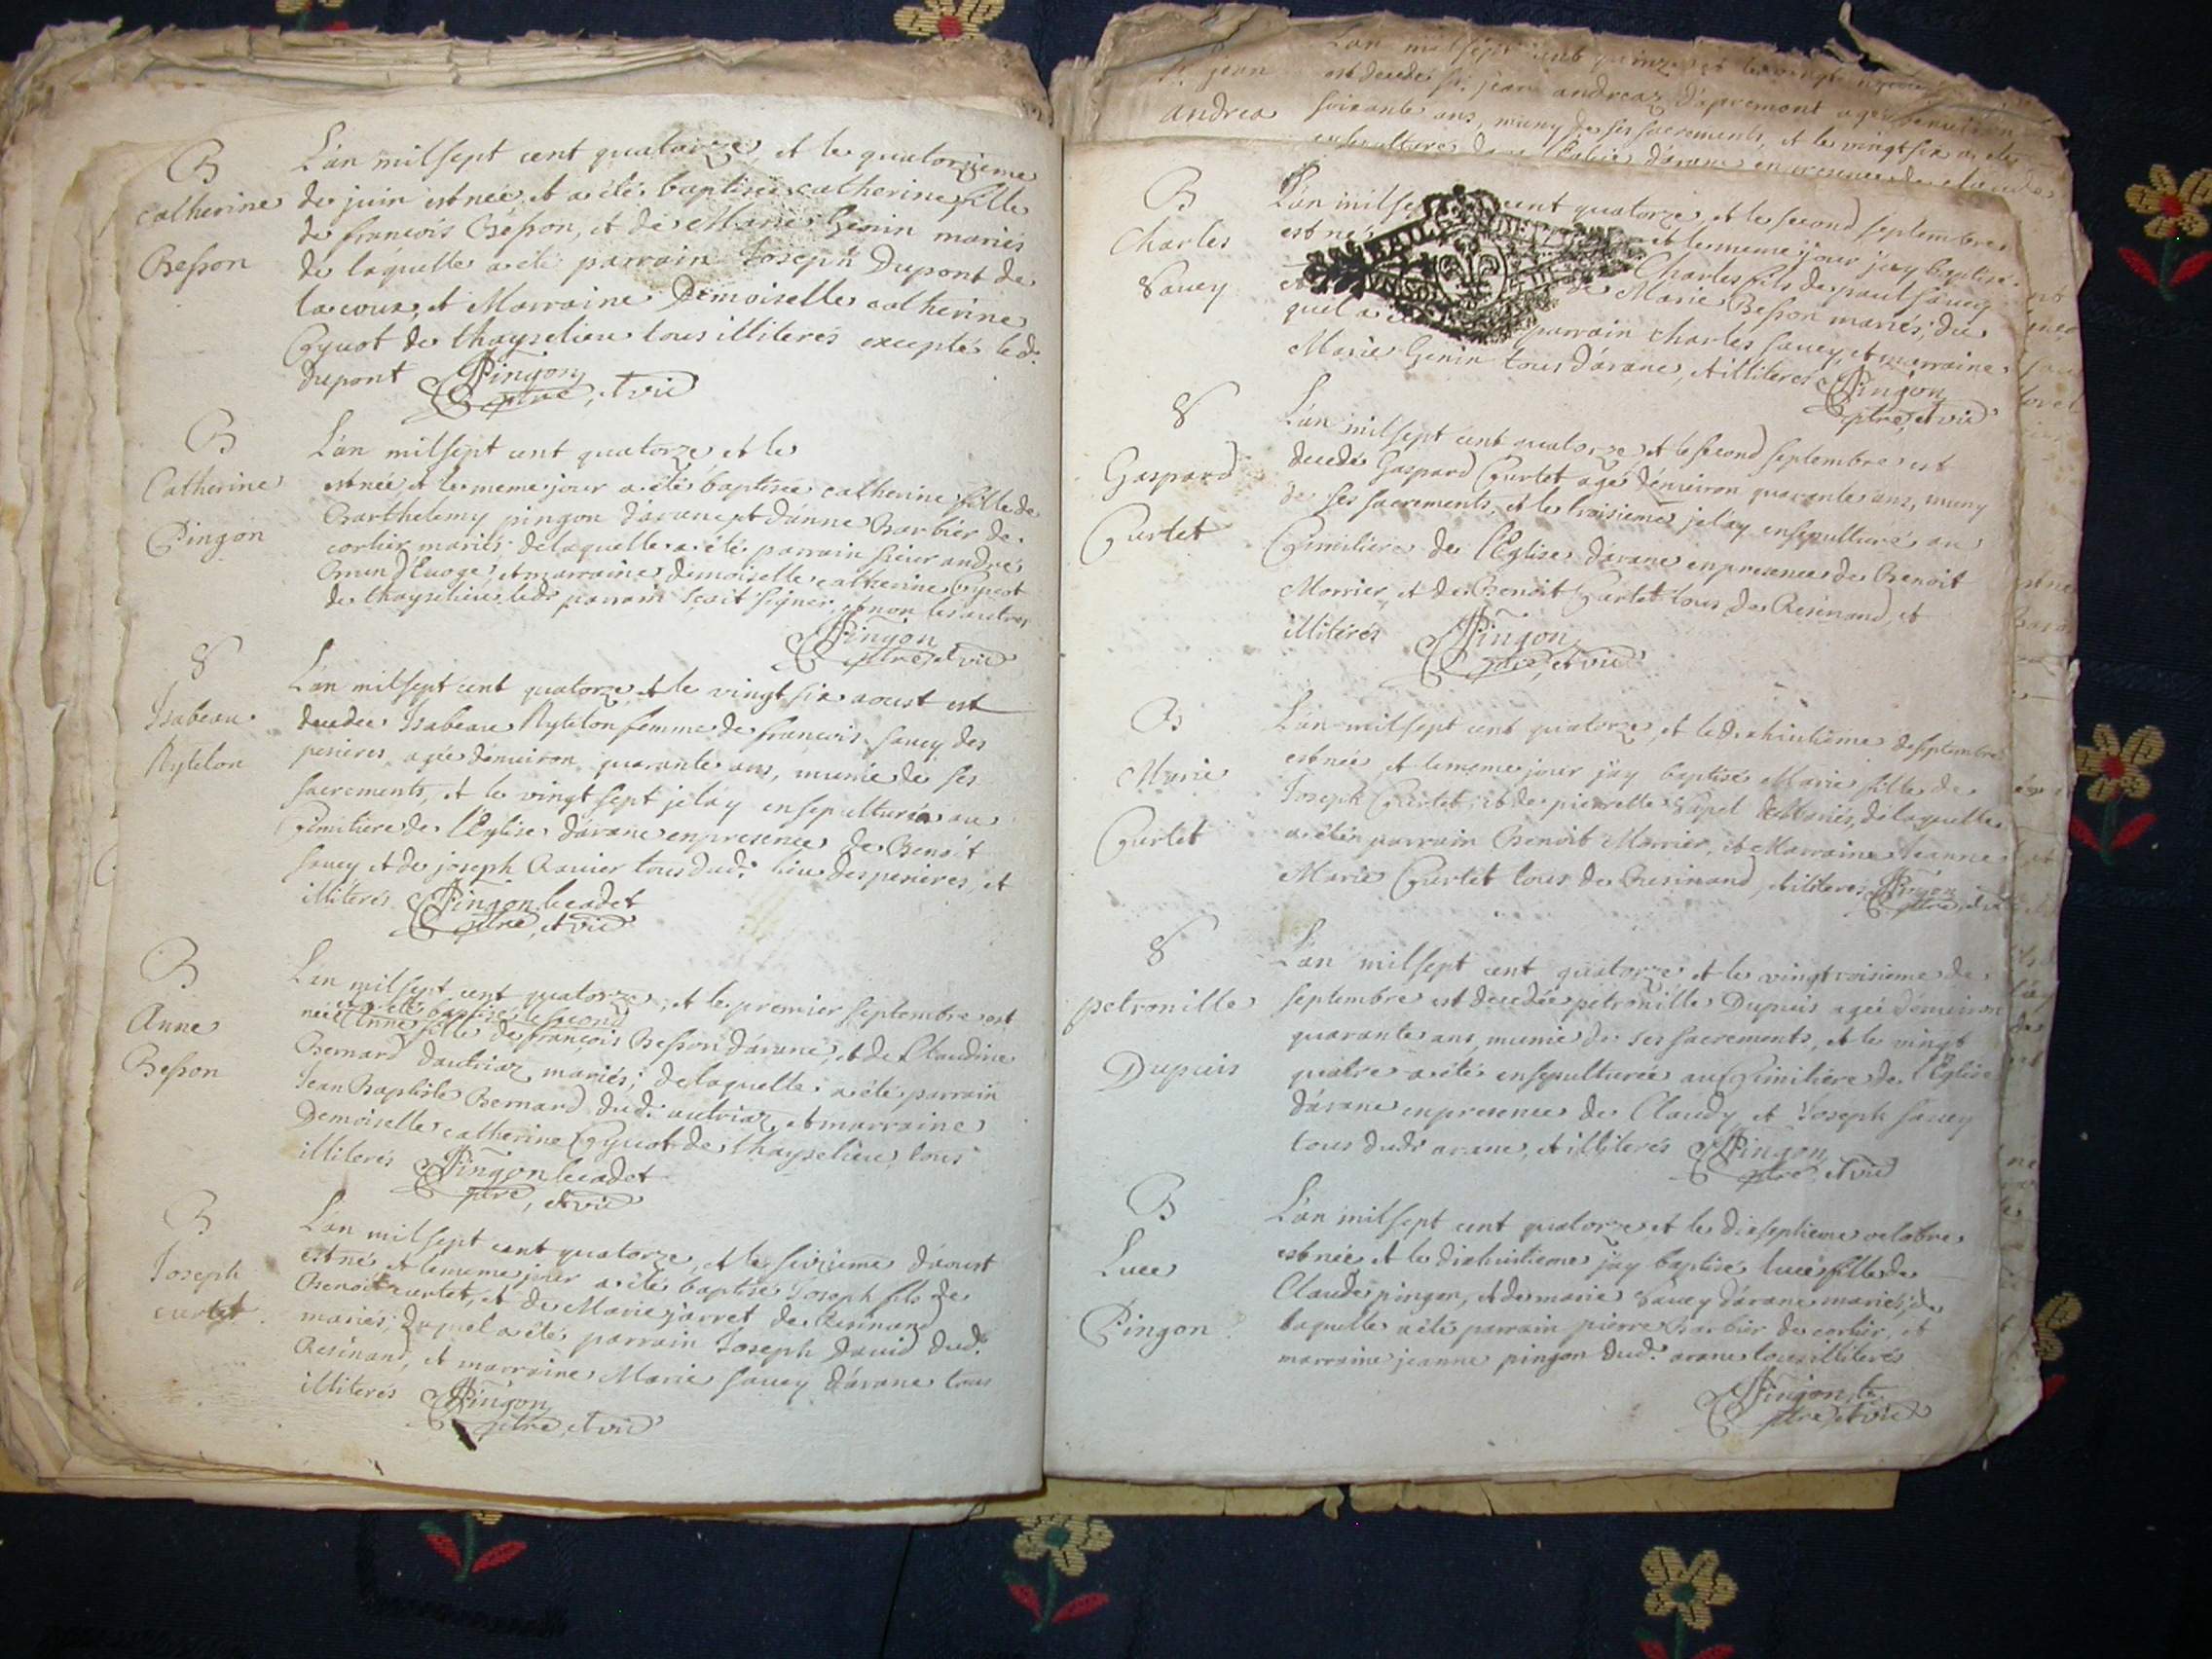 B
Catherine
Besson
L'an mil sept cent quatorze, et le quatorzieme
de juin est née et a été baptisée catherine fille
de francois Besson, et de Marie Genin mariés
de laquelle a été parrain Joseph Dupont de
la coux, et Marraine Demoiselle catherine
Guyot de thayselieu tous illiterés exceptés led.
Dupont Pingon
ptre, et vic
B
Catherine
Pingon
L'an mil sept cent quatorze et le
est née et le meme jour a été baptisée catherine fille de
Barthelemy pingon d'arane et d'anne Barbier de
corlier mariés delaquelle a été parrain sieur andré
d'Evoge, et marraine demoiselle catherine Guyot
de thayselieu led. parrain scait signer, et non les autres
Pingon
ptre, et vic
S
Isabeau
Ryteton
L'an mil sept cent quatorze, et le vingt six aoust est
decedée Isabeau Ryteton femme de francois savey des
perieres agée d'environ quarante ans, munie de ses
sacrements, et le vingt sept je l'ay ensepulturée au
Cimitiere de l'Eglise d'arane en presence de Benoit
savey et de joseph Ravier tous dud. lieu des perieres, et
illiterés Pingon le cadet
ptre, et vic
B
Anne
Besson
L'an mil sept cent quatorze, et le premier septembre est
et a été baptisée le second
née Anne fille de françois Besson d'arane, et de Claudine
Bernard d'autriaz mariés; delaquelle a été parrain
Jean Baptiste Bernard dud. autriaz, et marraine
Demoiselle catherine Guyot de thayselieu, tous
illiterés Pingon le cadet
ptre, et vic
B
Joseph
curtet
L'an mil sept cent quatorze, et le sixieme d'aoust
est né et le meme jour a été baptisé Joseph fils de
Benoit curtet, et de Marie jarret de Resinand
mariés; duquel a été parrain Joseph David dud.
Resinand, et marraine Marie savey d'arane tous
illiterés Pingon
ptre, et vic
L'an mil sept cent quinze et le vingt
Sr. jean
andrea
est decedé sr. jean andreaz d'apremont agé d'environ
soixante ans, muny de ses sacrements, et le vingt six a été
ensepulturé dans l'Eglise d'arane en presence de claude
B
Charles
Savey
L'an mil sept cent quatorze, et le second septembre
est né et le meme jour jay baptisé
Charles fils de paul savey
et de Marie Besson mariés; du
quel a été parrain charles savey, et marraine
Marie Genin tous d'arane, et illiterés Pingon
ptre, et vic
S
Gaspard
Curtet
L'an mil sept cent quatorze et le second septembre est
decedé Gaspard Curtet agé d'environ quarante ans, muny
de ses sacrements, et le troisieme je l'ay ensepulturé au
Cimitiere de l'Eglise d'arane en presence de Benoit
Morrier, et de Benoit Curtet tous de Resinand, et
illiterés Pingon
ptre, et vic
B
Marie
Curtet
L'an mil sept cent quatorze, et le dixhuitieme de septembre
est née, et le meme jour j'ay baptisé Marie fille de
Joseph Curtet, et de pierrette Mariés, delaquelle
a été parrain Benoit Morrier, et Marraine Jeanne
Marie Curtet tous de Resinand, et illiterés Pingon
ptre, et vic
S
petronille
Dupuis
L'an mil sept cent quatorze et le vingt troisieme de
septembre est decedée petronille Dupuis agée d'environ
quarante ans, munie de ses sacrements, et le vingt
quatre a été ensepulturée au Cimitiere de l'Eglise
d'arane en presence de Claudy, et Joseph savey
tous dud. arane, et illiterés Pingon
ptre, et vic
B
Luce
Pingon
L'an mil sept cent quatorze, et le dixseptieme octobre
est née et le dixhuitieme j'ay baptisé luce fille de
Claude pingon, et de marie Savey d'arane mariés; de
laquelle a été parrain pierre Barbier de corlier, et
marraine jeanne pingon dud. arane tous illiterés
Pingon
ptre, et vic